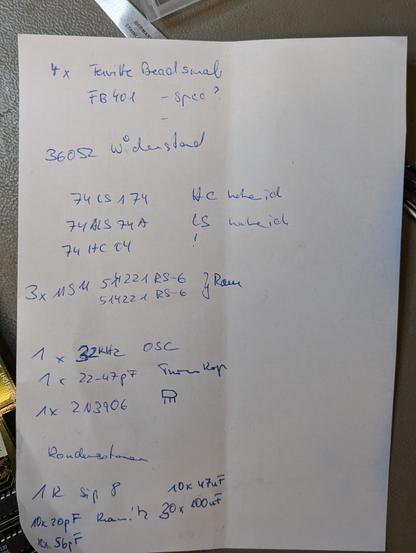 4x Ferrite Bead small
FB401 - Spec?
-
360Ω Widerstand
74 LS 174 HC habe ich
74ALS 74A LS habe ich
74 HC 04 !
3x MSM 514221 RS-6 } Ram
514221 RS-6
1 x 32KHz OSC
1 x 22-47pF
1x 2N3906
Kondensatoren
1K Sip 8 10x 47uF
10x 20pF Keramik 30x 100nF
56pF